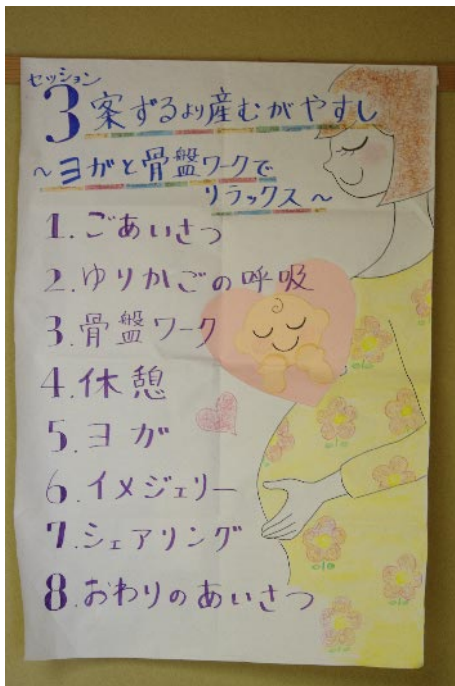 セッション
3 案ずるより産むがやすし
~ヨガと骨盤ワークで
リラックス~
1. ごあいさつ
2. ゆりかごの呼吸
3. 骨盤ワーク
4. 休憩
5. ヨガ
6. イメジェリー
7. シェアリング
8. おわりのあいさつ